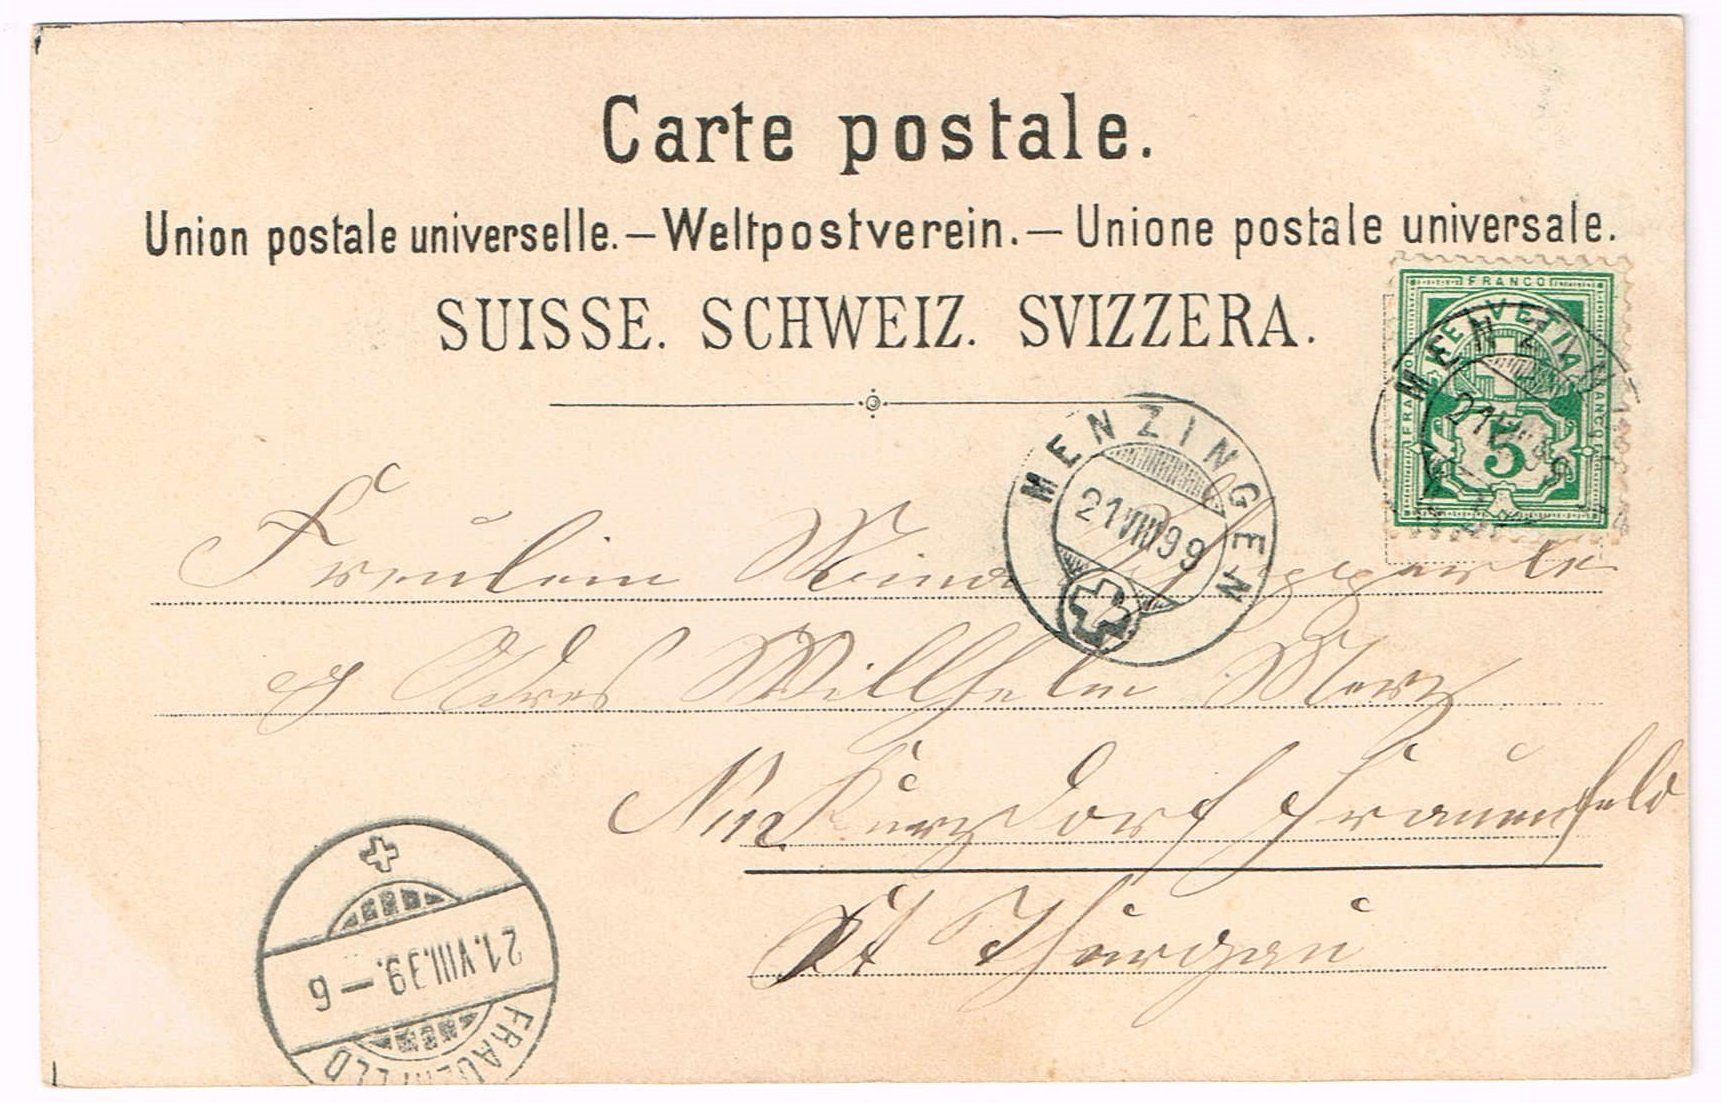 Carte postale.
Union postale universelle. – Weltpostverein. – Unione postale universale.
SUISSE. SCHWEIZ. SVIZZERA.
FRANCO
HELVETIA
FRANCO
FRANCO
5
MENZINGEN
21 VIII 99
MENZINGEN
21 VIII 99
Fräulein
Adres Willhelm Merz
Kurzdorf Frauenfeld
Kt Thurgau
21.VIII.99.–6
FRAUENFELD